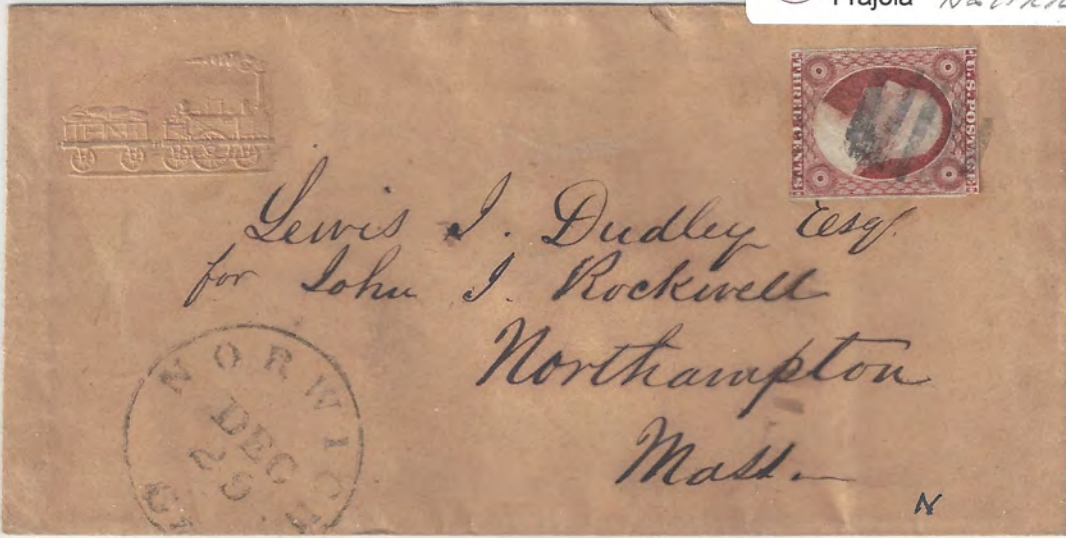 Prajola
U.S. POSTAGE
THREE CENTS
Lewis J. Dudley Esq.
for John J. Rockwell
Northampton
Mass
NORWICH
DEC
29
N